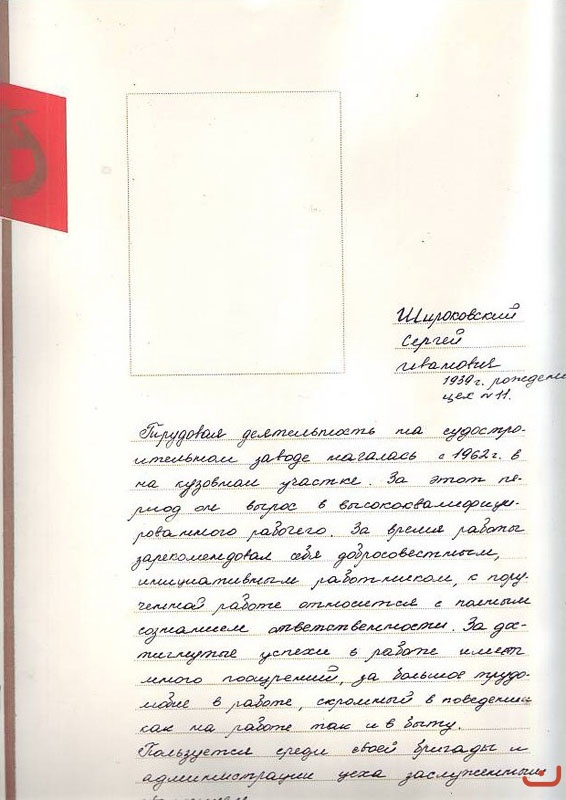 Широковский
Сергей
Иванович
1939 г. рождени
цех № 11.
Трудовая деятельность на судостро-
ительном заводе началась с 1962 г. в
на кузовном участке. За этот пе-
риод он вырос в высококвалифици-
рованного рабочего. За время работы
зарекомендовал себя добросовестным,
инициативным работником, к пору-
ченной работе относится с полным
сознанием ответственности. За дос-
тигнутые успехи в работе имеет
много поощрений, за большое трудо-
любие в работе, скромный в поведении
как на работе так и в быту.
Пользуется среди своей бригады и
администрации цеха заслуженным